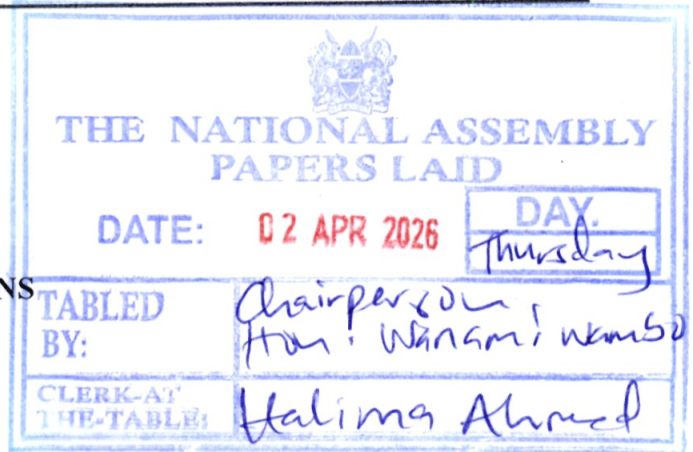 THE NATIONAL ASSEMBLY
PAPERS LAID
DATE: 02 APR 2026
DAY.
Thursday
NS
TABLED BY:
Chairperson,
Hon. Wanami Wambo
CLERK-AT THE-TABLE:
Halima Ahmed